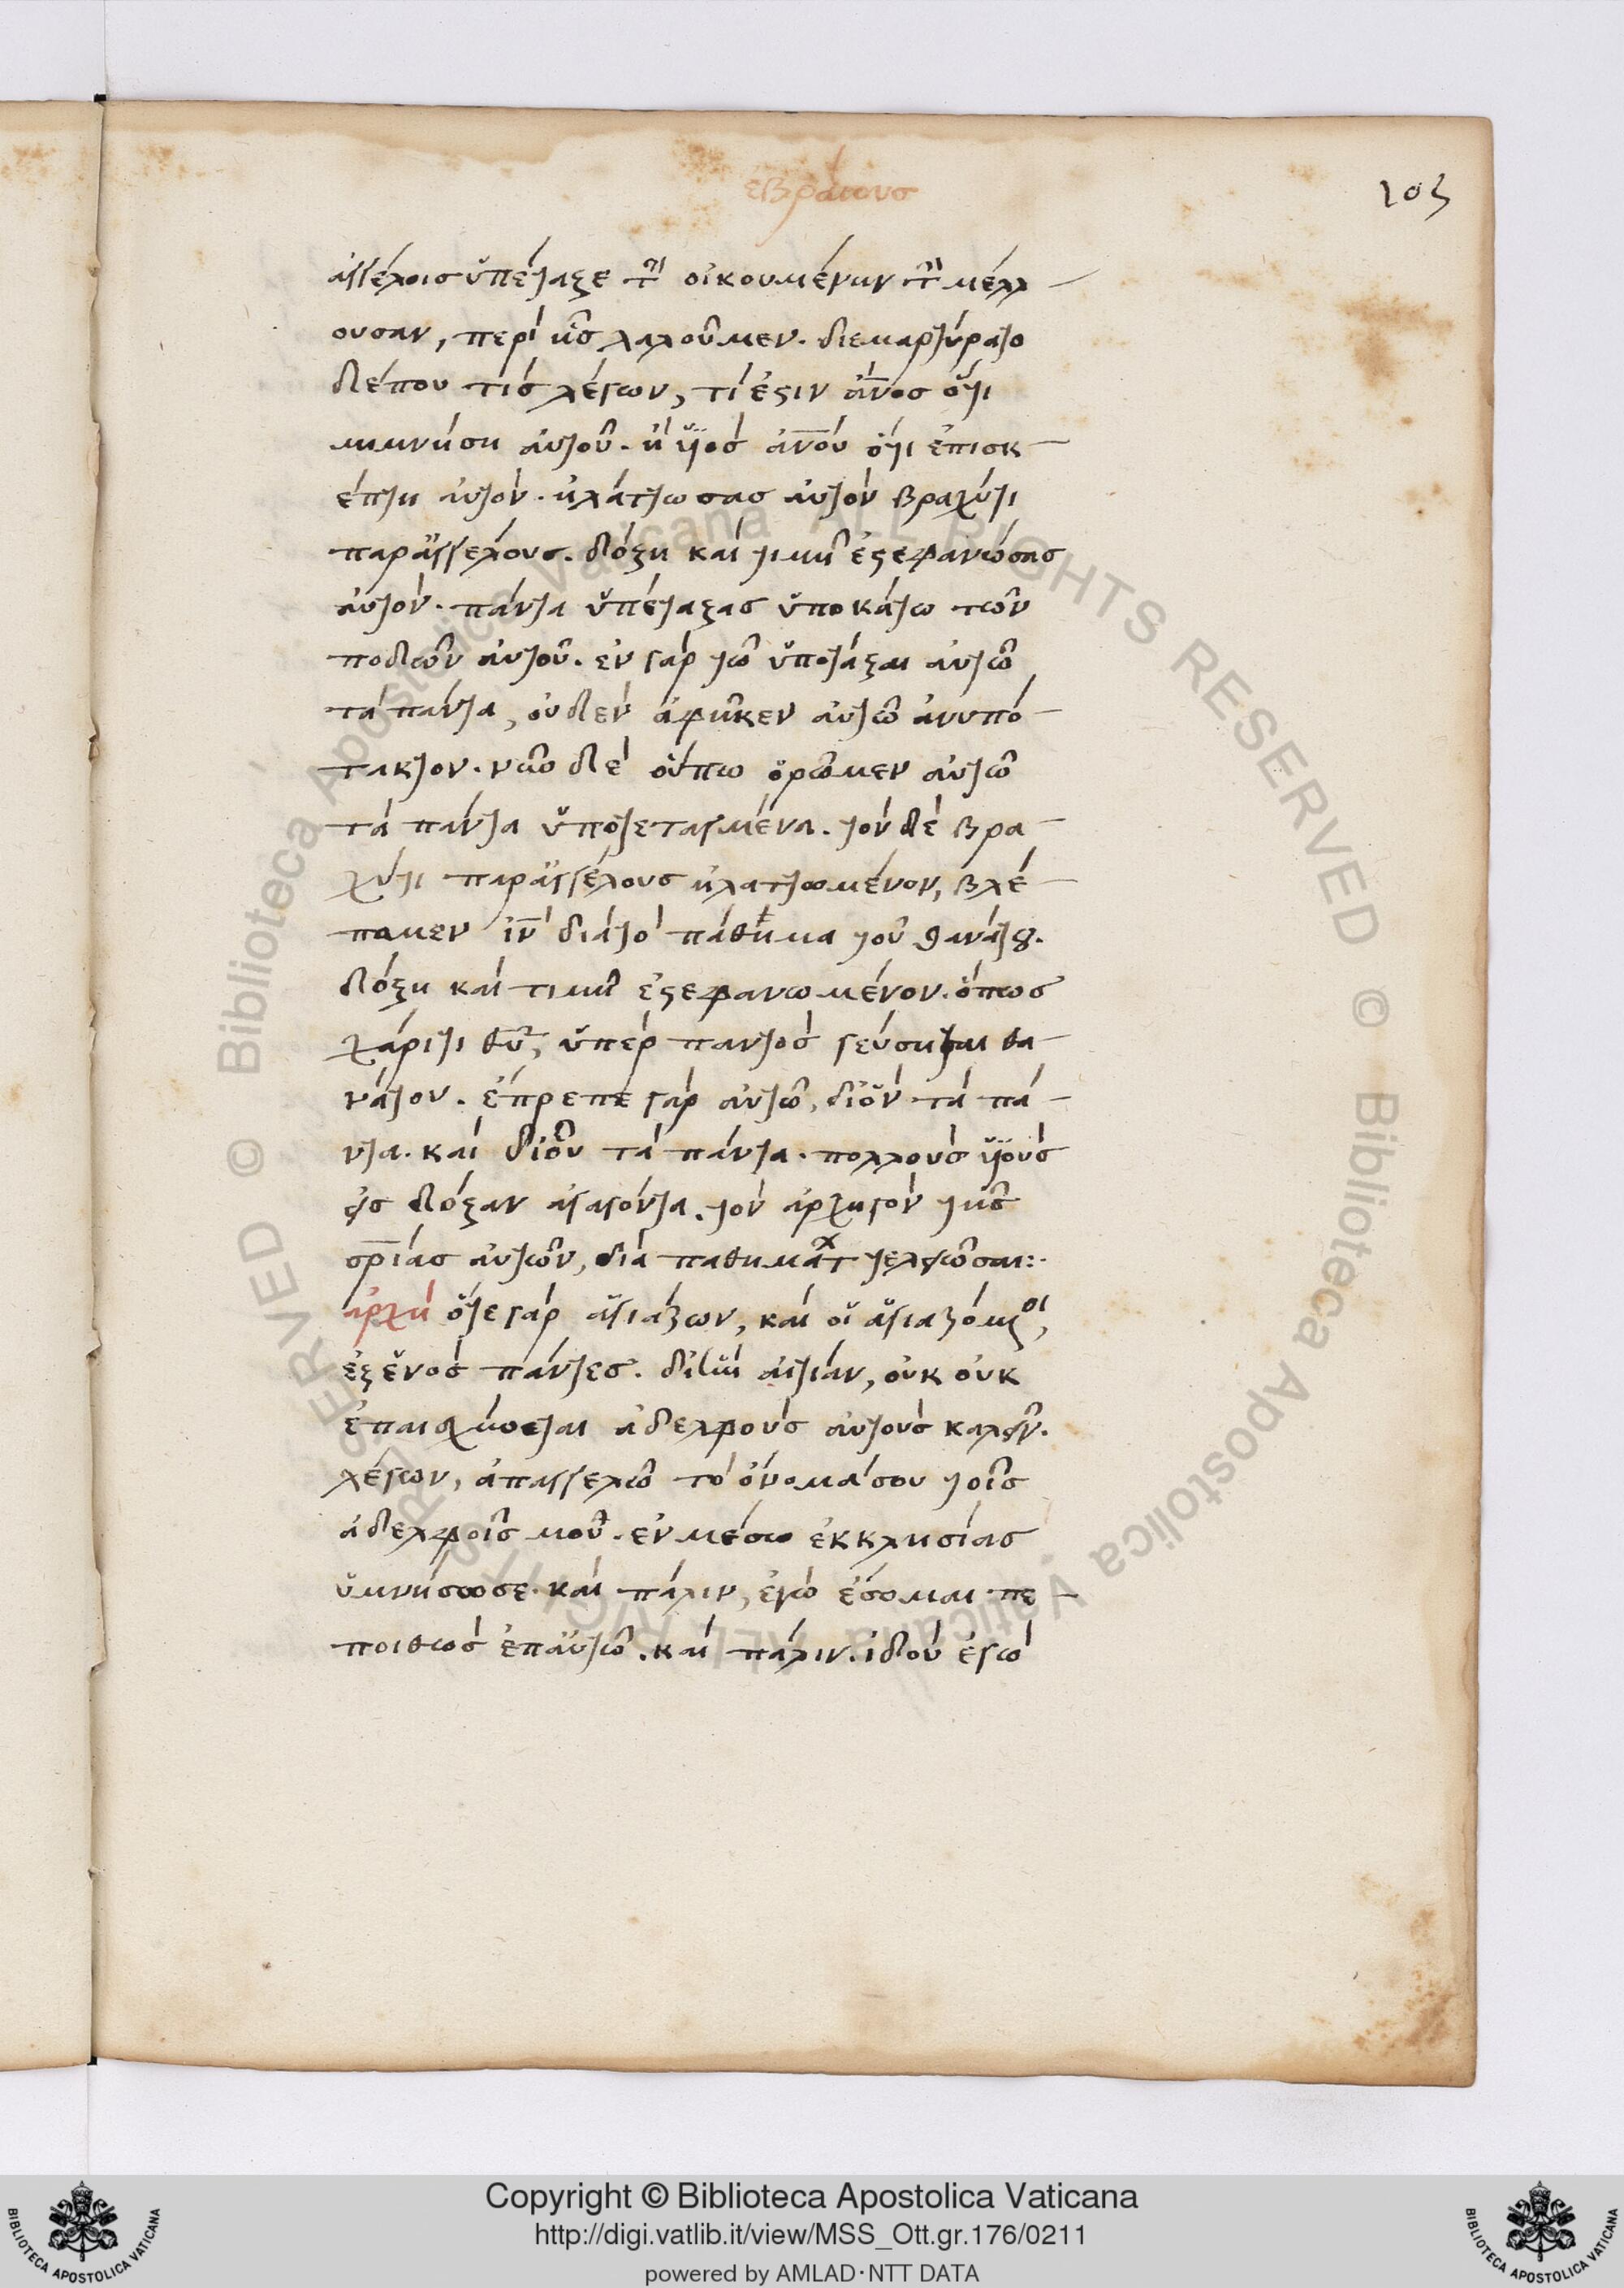 εβραιουσ
105
ἀγγέλοισ ὑπέταξε τὴν οἰκουμένην τὴν μέλλ
ουσαν, περὶ ἧσ λαλοῦμεν. διεμαρτύρατο
δέπου τὶσ λέγων, τί ἐστιν ἄνοσ ὅτι
μιμνήση αὐτοῦ. ἢ ὑϊὸσ ἀνου ὅτι ἐπισκ
έπτη αὐτόν. ἠλάττωσασ αὐτὸν βραχύτι
παρἀγγέλους. δόξη καὶ τιμῆ ἐστεφανώσασ
αὐτόν. πάντα ὑπέταξασ ὑποκάτω τῶν
ποδῶν αὐτοῦ. ἐν γὰρ τῶ ὑποτάξαι αὐτῶ
τὰ πάντα, οὐδὲν ἀφῆκεν αὐτῶ ἀνυπό
τακτον. νῦν δὲ οὔπω ὁρῶμεν αὐτῶ
τὰ πάντα ὑποτεταγμένα. τὸν δὲ βρα
χύτι παρἀγγέλους ἠλαττωμένον, βλέ
πομεν ἰν διὰ τὸ πάθημα τοῦ θανάτου.
δόξη καὶ τιμῆ ἐστεφανωμένον. ὅπωσ
χάριτι θυ, ὑπὲρ παντὸσ γεύσηται θα
νάτου. ἔπρεπε γὰρ αὐτῶ, διὃν τὰ πά
ντα. καὶ διοὗ τὰ πάντα. πολλοὺσ ὑϊοὺσ
εἰσ δόξαν ἀγαγόντα. τὸν ἀρχηγὸν τῆσ
σρίασ αὐτῶν, διὰ παθημάτ τελειῶσαι:
ἀρχὴ ὅτε γὰρ ἁγιάζων, καὶ οἱ ἁγιαζόμενοι,
ἐξἑνὸσ πάντεσ. διἣν αἰτίαν, οὐκ οὐκ
ἐπαισχύνεται ἀδελφοὺσ αὐτοὺσ καλεῖν.
λέγων, ἀπαγγελῶ τὸ ὄνομά σου τοῖσ
ἀδελφοῖσ μοῦ. ἐν μέσω ἐκκλησίασ
ὑμνήσωσε. καὶ πάλιν, ἐγὼ ἔσομαι πε
ποιθὼσ ἐπἀυτῶ. καὶ πάλιν. ἰδοὺ ἐγὼ
Copyright © Biblioteca Apostolica Vaticana
http://digi.vatlib.it/view/MSS_Ott.gr.176/0211
powered by AMLAD·NTT DATA